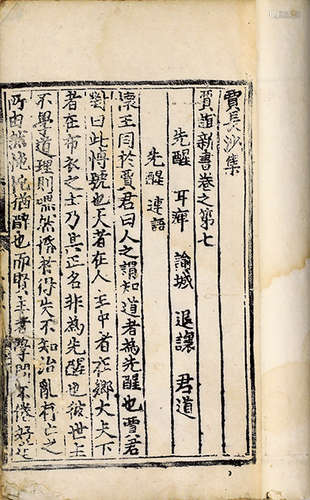 賈長沙集
賈誼新書卷之第七
先醒 耳痺 諭城 退讓 君道
先醒 連語
懷王問於賈君曰人之謂知道者為先醒也賈君
對曰此愽號也大者在人主中者在卿大夫下
者在布衣之士乃其正名非為先醒也彼世主
不學道理則嘿然惛於得失不知治亂存亡之
所由 猶醉也而賢主者學問不倦好道